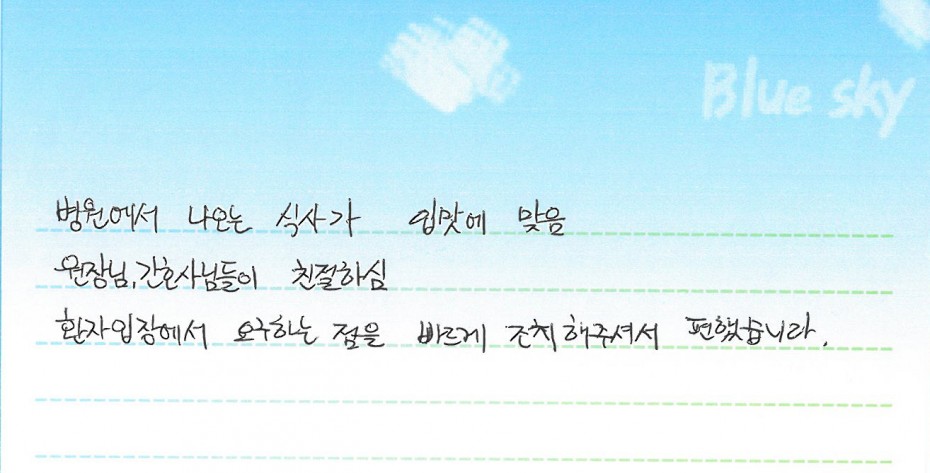 Blue sky
병원에서 나오는 식사가 입맛에 맞음
원장님, 간호사님들이 친절하심
환자입장에서 요구하는 점을 빠르게 조치해주셔서 편했습니다.